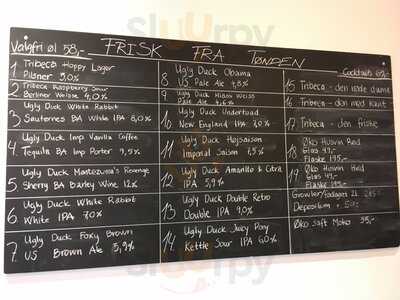 Valgfri øl 58,-
FRISK FRA TØNDEN
Cocktails 65,-
1 Tribeca Hoppy Lager
Pilsner 5,0%
2 Tribeca Raspberry Sour
Berliner Weisse 4,0%
3 Ugly Duck White Rabbit
Sauternes BA White IPA 8,0%
4 Ugly Duck Imp Vanilla Coffee
Tequila BA Imp Porter 9,5%
5 Ugly Duck Montezuma's Revenge
Sherry BA Barley Wine 12%
6 Ugly Duck White Rabbit
White IPA 7,0%
7 Ugly Duck Foxy Brown
US Brown Ale 5,9%
8 Ugly Duck Obama
US Pale Ale
9 Ugly Duck
Pale Ale
10 Ugly Duck Undertoad
New England IPA
11 Ugly Duck Højsaison
Imperial Saison 7,5%
12 Ugly Duck Amarillo & Citra
IPA 5,9%
13 Ugly Duck Double Retro
Double IPA
14 Ugly Duck Juicy Pony
Kettle Sour IPA 6,0%
15 Tribeca - den røde dame
16 Tribeca - den med kant
17 Tribeca - den friske
18 Øko Husvin Rød
Glas
Flaske 195,-
19 Øko Husvin Hvid
Glas
Flaske 195,-
Growler/Fadøl 2L
Depositum
Øko Saft
Sluurpy
Sluurpy